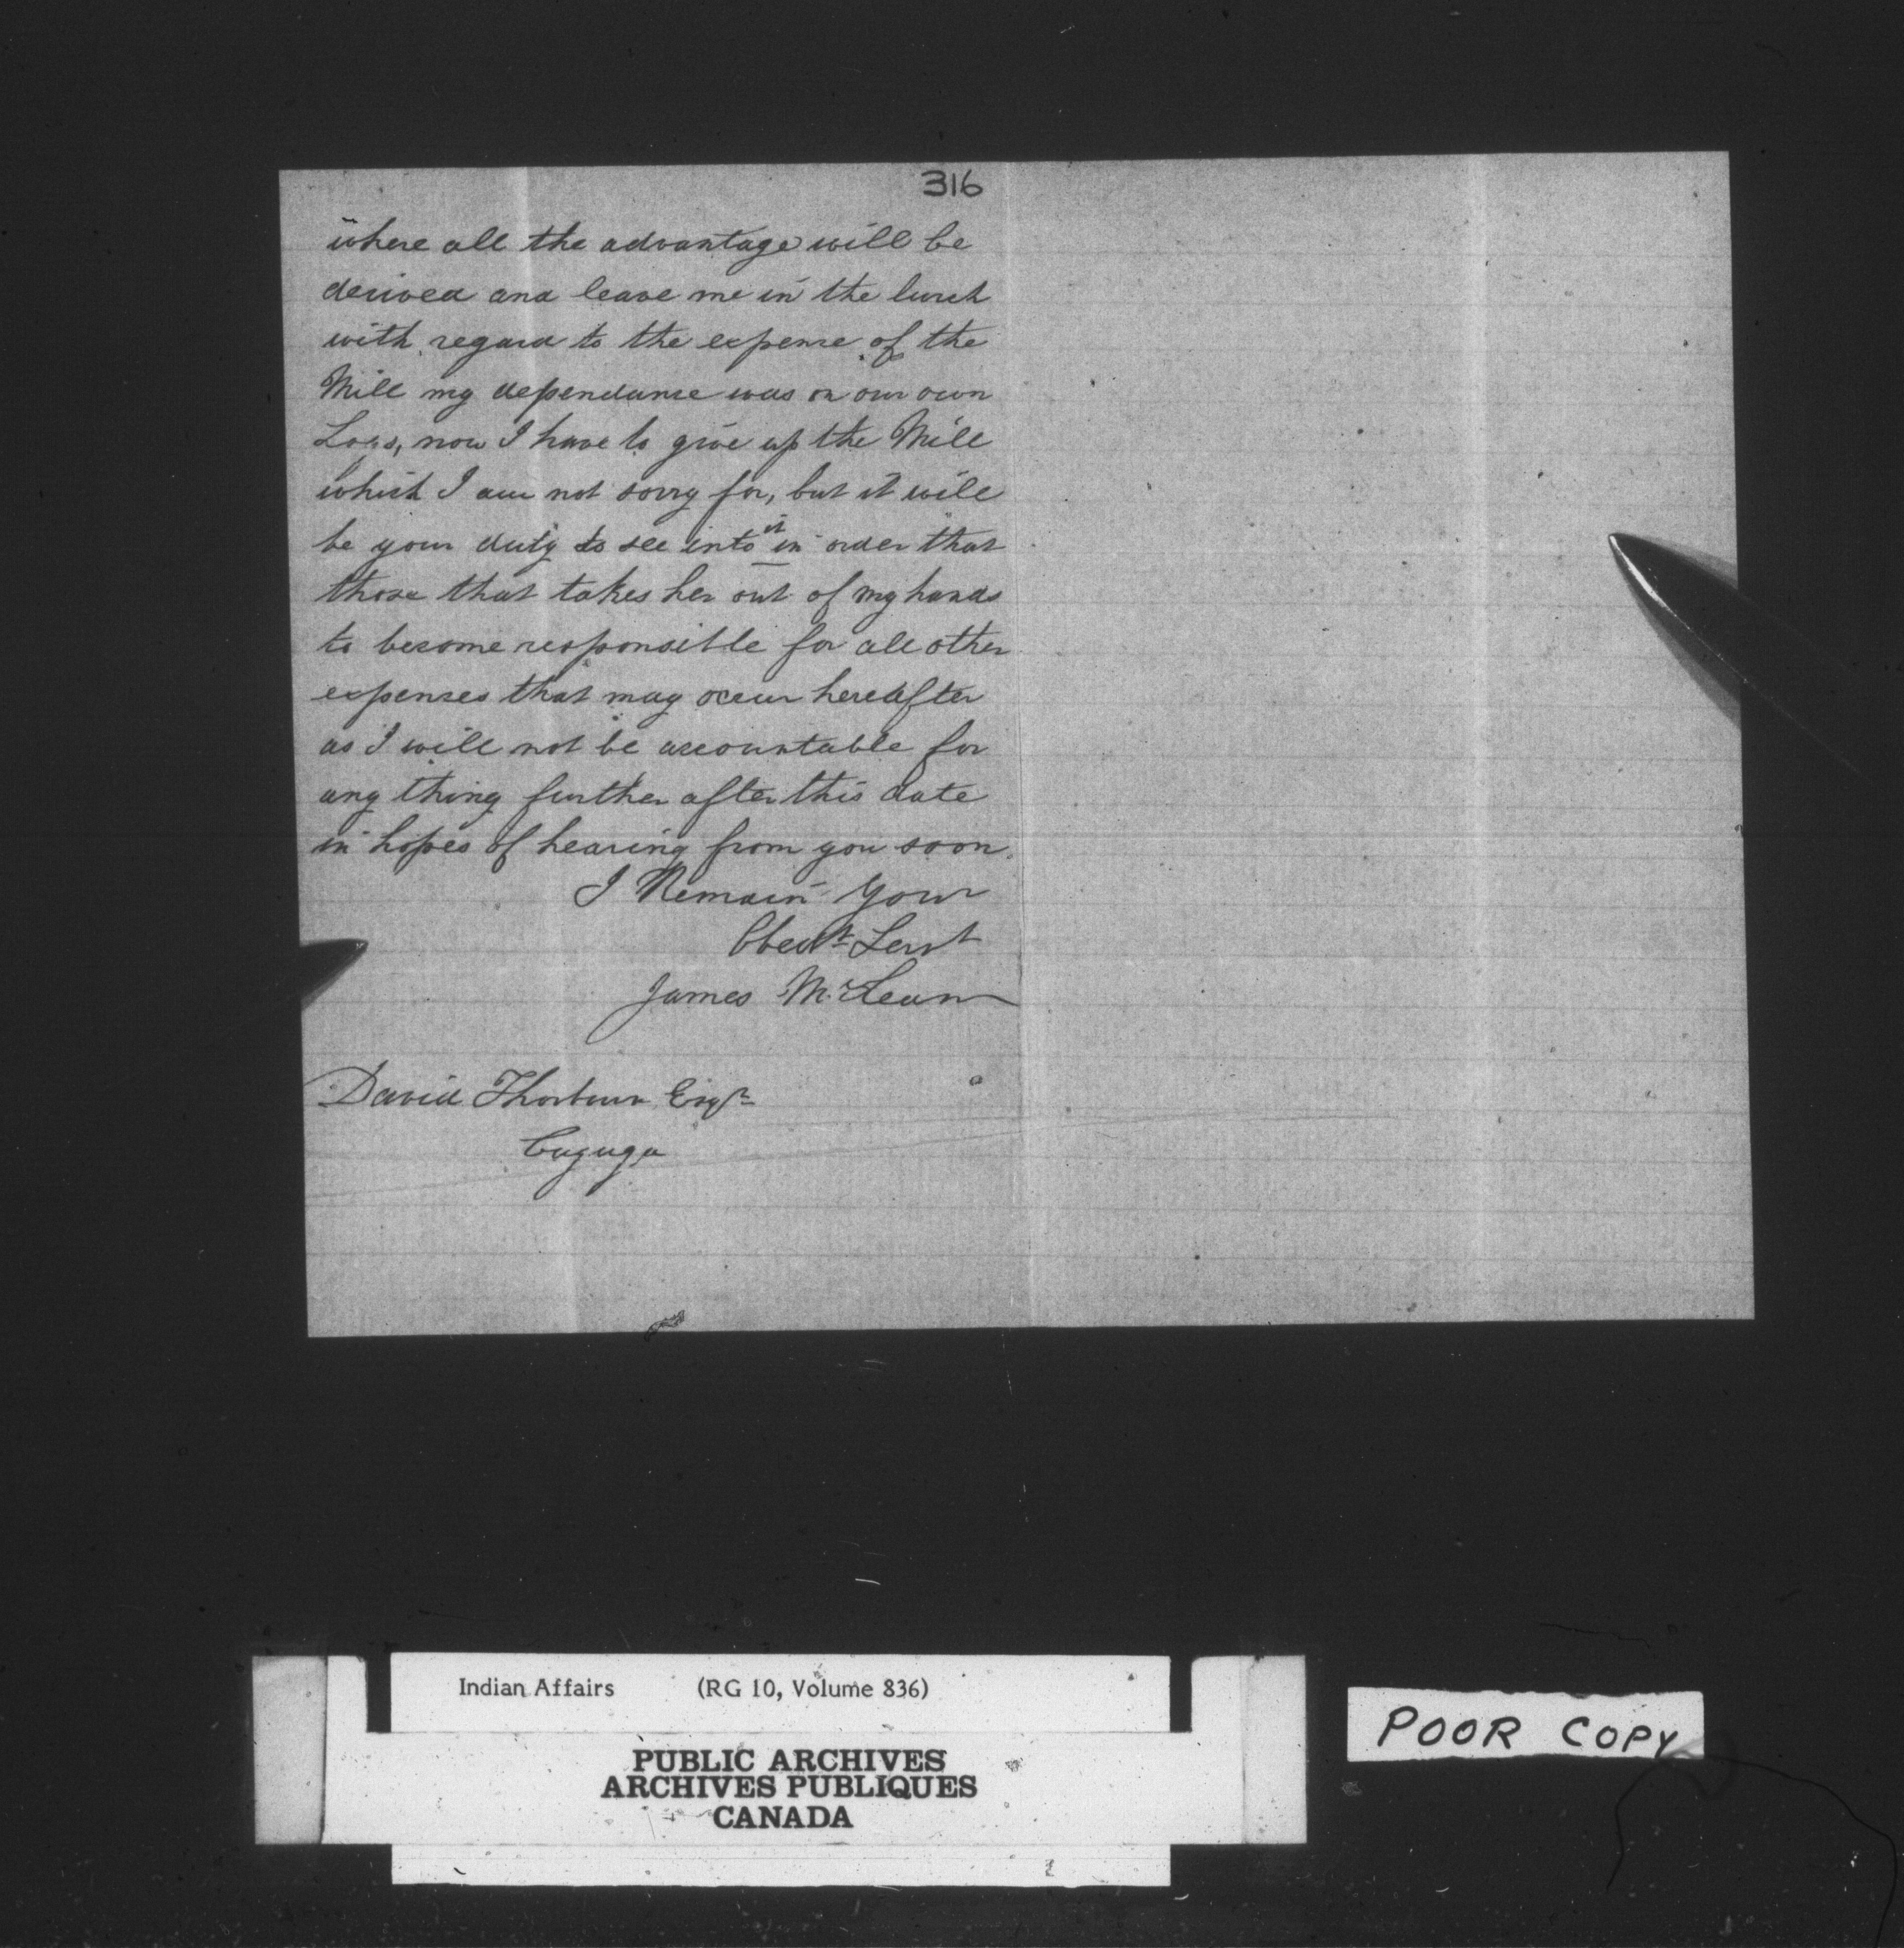 316
where all the advantage will be
derived and leave me in the lurch
with regard to the expense of the
Mill my dependance was on our own
Logs, now I have to give up the Mill
which I am not sorry for, but it will
be your duty to see into it in order that
those that takes her out of my hands
to become responsible for all other
expenses that may occur hereafter
as I will not be accountable for
any thing further after this date
in hopes of hearing from you soon.
I Remain Your
Obedt Servt
James McLean
David Thorburn Esqr
Cayuga
Indian Affairs (RG 10, Volume 836)
PUBLIC ARCHIVES
ARCHIVES PUBLIQUES
CANADA
POOR COPY